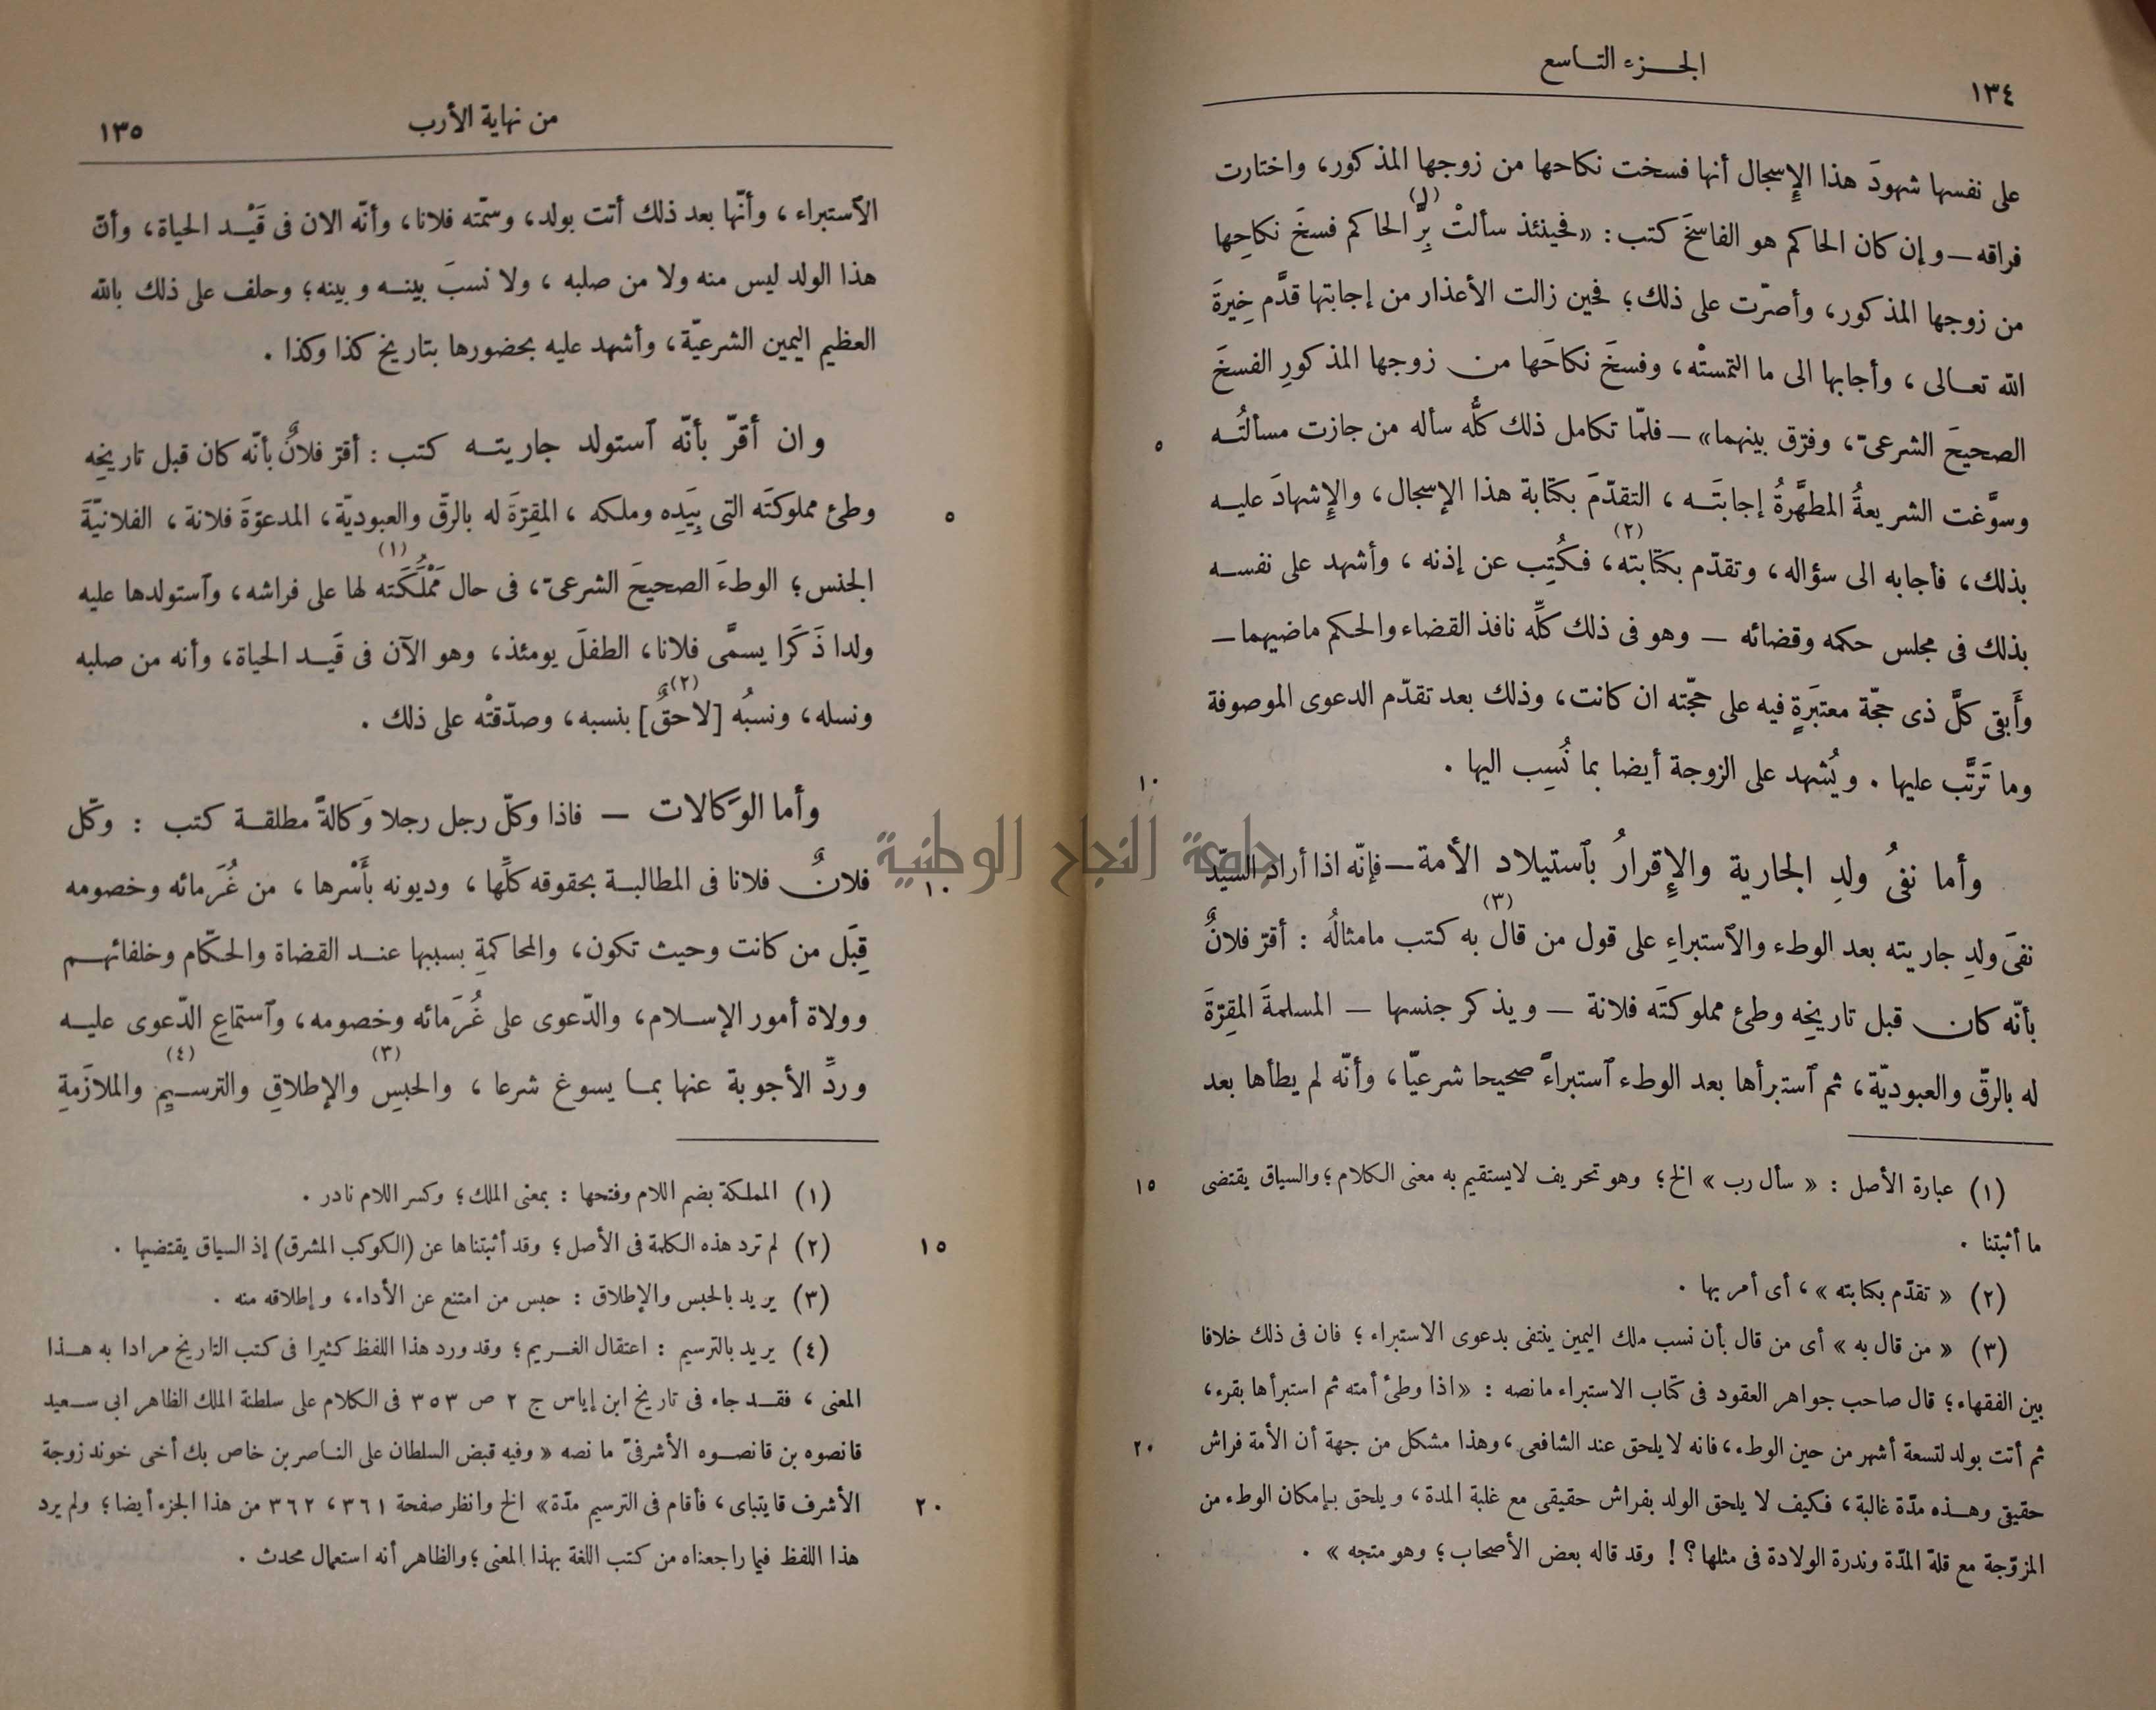 ١٣٤
الجزء التاسع
على نفسها شهودَ هذا الإِسجال أنها فسخت نكاحها من زوجها المذكور، واختارت
فراقه — وإن كان الحاكم هو الفاسخَ كتب : «فحينئذ سألتْ بِرَّ (١) الحاكم فسخَ نكاحِها
من زوجها المذكور، وأصرّت على ذلك؛ فحين زالت الأعذار من إجابتها قدَّم خِيرةَ
الله تعالى ، وأجابها الى ما التمستْه، وفسخَ نكاحَها من زوجها المذكورِ الفسخَ
الصحيحَ الشرعىّ، وفرّق بينهما» — فلمّا تكامل ذلك كلُّه سأله من جازت مسألتُه
٥
وسوَّغت الشريعةُ المطهَّرةُ إجابتَه ، التقدّمَ بكتابة هذا الإسجال، والإِشهادَ عليه
بذلك، فأجابه الى سؤاله، وتقدّم بكتابته (٢)، فكُتِب عن إذنه ، وأشهد على نفسه
بذلك فى مجلس حكمه وقضائه — وهو فى ذلك كلِّه نافذ القضاء والحكم ماضيهما —
وأَبقى كلَّ ذى حجّة معتبَرَةٍ فيه على حجّته ان كانت، وذلك بعد تقدّم الدعوى الموصوفة
وما تَرَتَّب عليها . ويُشهد على الزوجة أيضا بما نُسِب اليها .
١٠
وأما نفىُ ولدِ الجارية والإِقرارُ بٱستيلاد الأمة — فإنّه اذا أراد السيّد
نفىَ ولدِ جاريته بعد الوطء والاستبراءِ على قول من قال (٣) به كتب مامثالُه : أقرّ فلانٌ
بأنّه كان قبل تاريخِه وطئ مملوكتَه فلانة — ويذكر جنسها — المسلمةَ المقِرّةَ
له بالرقّ والعبوديّة، ثم ٱستبرأها بعد الوطء ٱستبراءً صحيحا شرعيّا، وأنّه لم يطأها بعد
(١) عبارة الأصل : « سأل رب » الخ؛ وهو تحريف لايستقيم به معنى الكلام؛ والسياق يقتضى
١٥
ما أثبتنا .
(٢) « تقدّم بكتابته » ، أى أمر بها .
(٣) « من قال به » أى من قال بأن نسب ملك اليمين ينتفى بدعوى الاستبراء ؛ فان فى ذلك خلافا
بين الفقهاء؛ قال صاحب جواهر العقود فى كتاب الاستبراء ما نصه : «اذا وطئ أمته ثم استبرأها بقرء،
ثم أتت بولد لتسعة أشهر من حين الوطء، فانه لا يلحق عند الشافعى، وهذا مشكل من جهة أن الأمة فراش
٢٠
حقيقى وهذه مدّة غالبة ، فكيف لا يلحق الولد بفراش حقيقى مع غلبة المدة ، ويلحق بإمكان الوطء من
المزوّجة مع قلة المدّة وندرة الولادة فى مثلها؟! وقد قاله بعض الأصحاب ؛ وهو متجه » .
من نهاية الأرب
١٣٥
الاستبراء ، وأنّها بعد ذلك أتت بولد، وسمّته فلانا، وأنّه الان فى قَيْد الحياة، وأنّ
هذا الولد ليس منه ولا من صلبه ، ولا نسبَ بينه وبينه؛ وحلف على ذلك بالله
العظيم اليمين الشرعيّة، وأشهد عليه بحضورها بتاريخ كذا وكذا .
وان أقرّ بأنّه ٱستولد جاريته كتب : أقرّ فلانٌ بأنّه كان قبل تاريخِه
وطئ مملوكتَه التى بِيَدِه وملكه ، المقِرّةَ له بالرقّ والعبوديّة، المدعوّةَ فلانة ، الفلانيّةَ
٥
الجنس؛ الوطءَ الصحيحَ الشرعىّ، فى حال مَمْلُكَته (١) لها على فراشه، وٱستولدها عليه
ولدا ذَكَرا يسمَّى فلانا، الطفلَ يومئذ، وهو الآن فى قَيد الحياة، وأنه من صلبه
ونسله، ونسبُه [لاحقٌ] (٢) بنسبه، وصدّقتْه على ذلك .
وأما الوَكالات — فاذا وكلّ رجل رجلا وَكالةً مطلقة كتب : وكّل
فلانٌ فلانا فى المطالبة بحقوقه كلِّها ، وديونه بأَسْرها ، من غُرَمائه وخصومه
١٠
قِبَل من كانت وحيث تكون، والمحاكمةِ بسببها عند القضاة والحكّام وخلفائهم
وولاة أمور الإسلام، والدّعوى على غُرَمائه وخصومه، وٱستماعِ الدّعوى عليه
وردِّ الأجوبة عنها بما يسوغ شرعا ، والحبسِ (٣) والإطلاقِ والترسيمِ (٤) والملازَمةِ
(١) المملكة بضم اللام وفتحها : بمعنى الملك؛ وكسر اللام نادر .
(٢) لم ترد هذه الكلمة فى الأصل ؛ وقد أثبتناها عن (الكوكب المشرق) إذ السياق يقتضيها .
١٥
(٣) يريد بالحبس والإطلاق : حبس من امتنع عن الأداء، وإطلاقه منه .
(٤) يريد بالترسيم : اعتقال الغريم؛ وقد ورد هذا اللفظ كثيرا فى كتب التاريخ مرادا به هذا
المعنى ، فقد جاء فى تاريخ ابن إياس ج ٢ ص ٣٥٣ فى الكلام على سلطنة الملك الظاهر ابى سعيد
قانصوه بن قانصوه الأشرفىّ ما نصه « وفيه قبض السلطان على الناصر بن خاص بك أخى خوند زوجة
الأشرف قايتباى ، فأقام فى الترسيم مدّة» الخ وانظر صفحة ٣٦١ ، ٣٦٢ من هذا الجزء أيضا؛ ولم يرد
٢٠
هذا اللفظ فيما راجعناه من كتب اللغة بهذا المعنى؛ والظاهر أنه استعمال محدث .
جامعة النجاح الوطنية